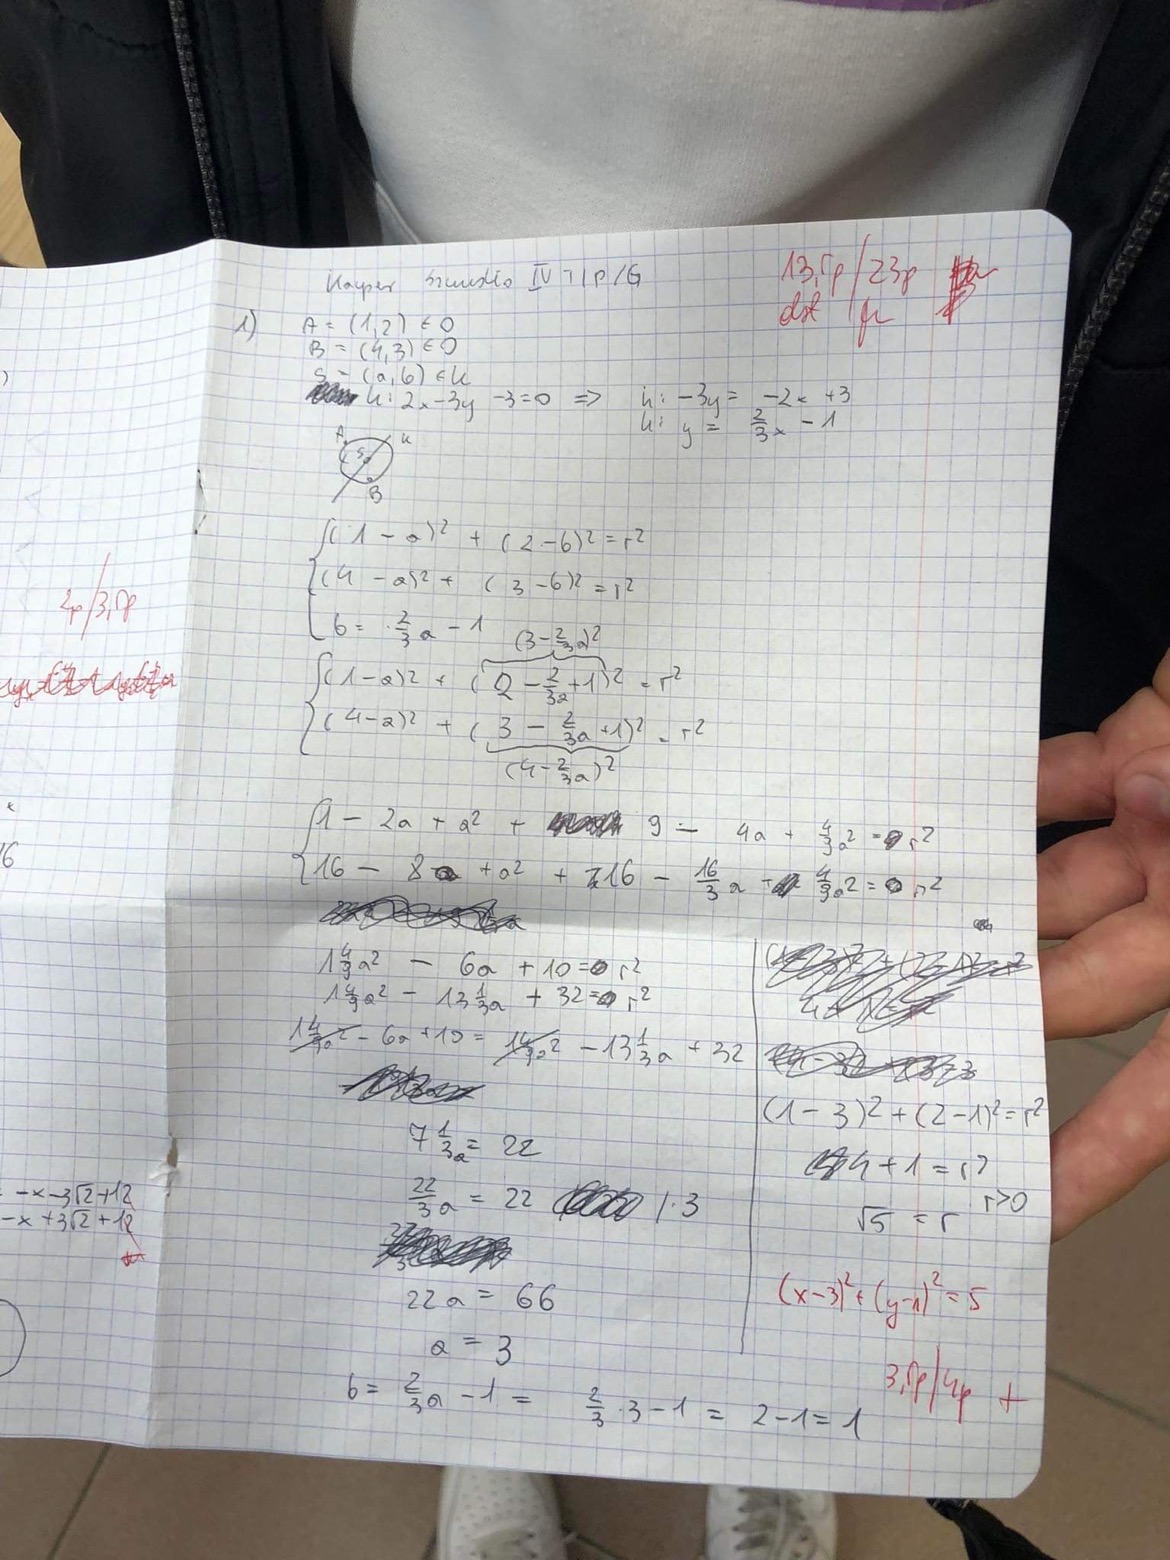 IV T1P/G
13,5p/23p
dst
1) A = (1,2) ∈ O
B = (4,3) ∈ O
S = (a,b) ∈ k
k: 2x-3y -3=0 => k: -3y = -2x +3
k: y = 2/3x - 1
A k
S
B
(1-a)² + (2-b)² = r²
(4-a)² + (3-b)² = r²
b = 2/3a - 1
(3-2/3a)²
(1-a)² + (2-2/3a+1)² = r²
(4-a)² + (3-2/3a+1)² = r²
(4-2/3a)²
1 - 2a + a² + 9 - 4a + 4/9a² = r²
16 - 8a + a² + 16 - 16/3a + 4/9a² = r²
1 4/9a² - 6a + 10 = r²
1 4/9a² - 13 1/3a + 32 = r²
1 4/9a² - 6a + 10 = 1 4/9a² - 13 1/3a + 32
7 1/3a = 22
22/3a = 22 /·3
22a = 66
a = 3
b = 2/3a - 1 = 2/3·3-1 = 2-1=1
(1-3)² + (2-1)² = r²
4+1 = r²
r>0
√5 = r
(x-3)²+(y-1)²=5
3,5p/4p +
2p/3,5p
16
= -x-3√2+12
-x+3√2+12